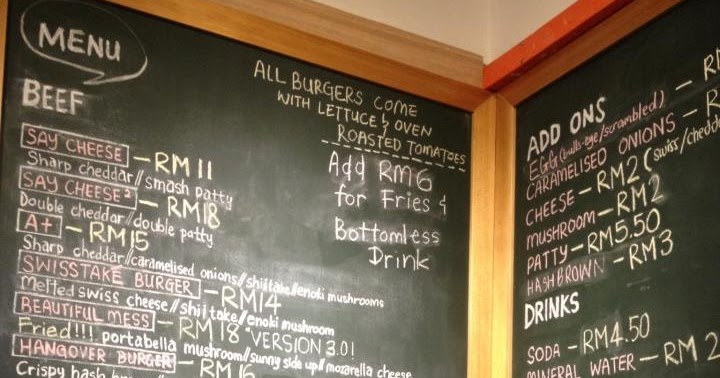 MENU
BEEF
SAY CHEESE - RM 11
Sharp cheddar//smash patty
SAY CHEESE² - RM18
Double cheddar/double patty
A+ - RM15
Sharp cheddar/caramelised onions//shiitake/enoki mushrooms
SWISSTAKE BURGER - RM14
Melted swiss cheese//shiitake/enoki mushroom
BEAUTIFUL MESS - RM18 "VERSION 3.0!
Fried!!! portabella mushroom/sunny side up//mozarella cheese
HANGOVER BURGER - RM16
Crispy hash
ALL BURGERS COME
WITH LETTUCE & OVEN
ROASTED TOMATOES
Add RM6
for Fries &
Bottomless
Drink
ADD ONS
EGG (bulls-eye/scrambled) -
CARAMELISED ONIONS -
CHEESE - RM2 (swiss/cheddar
MUSHROOM - RM2
PATTY - RM5.50
HASHBROWN - RM3
DRINKS
SODA - RM4.50
MINERAL WATER - RM 2